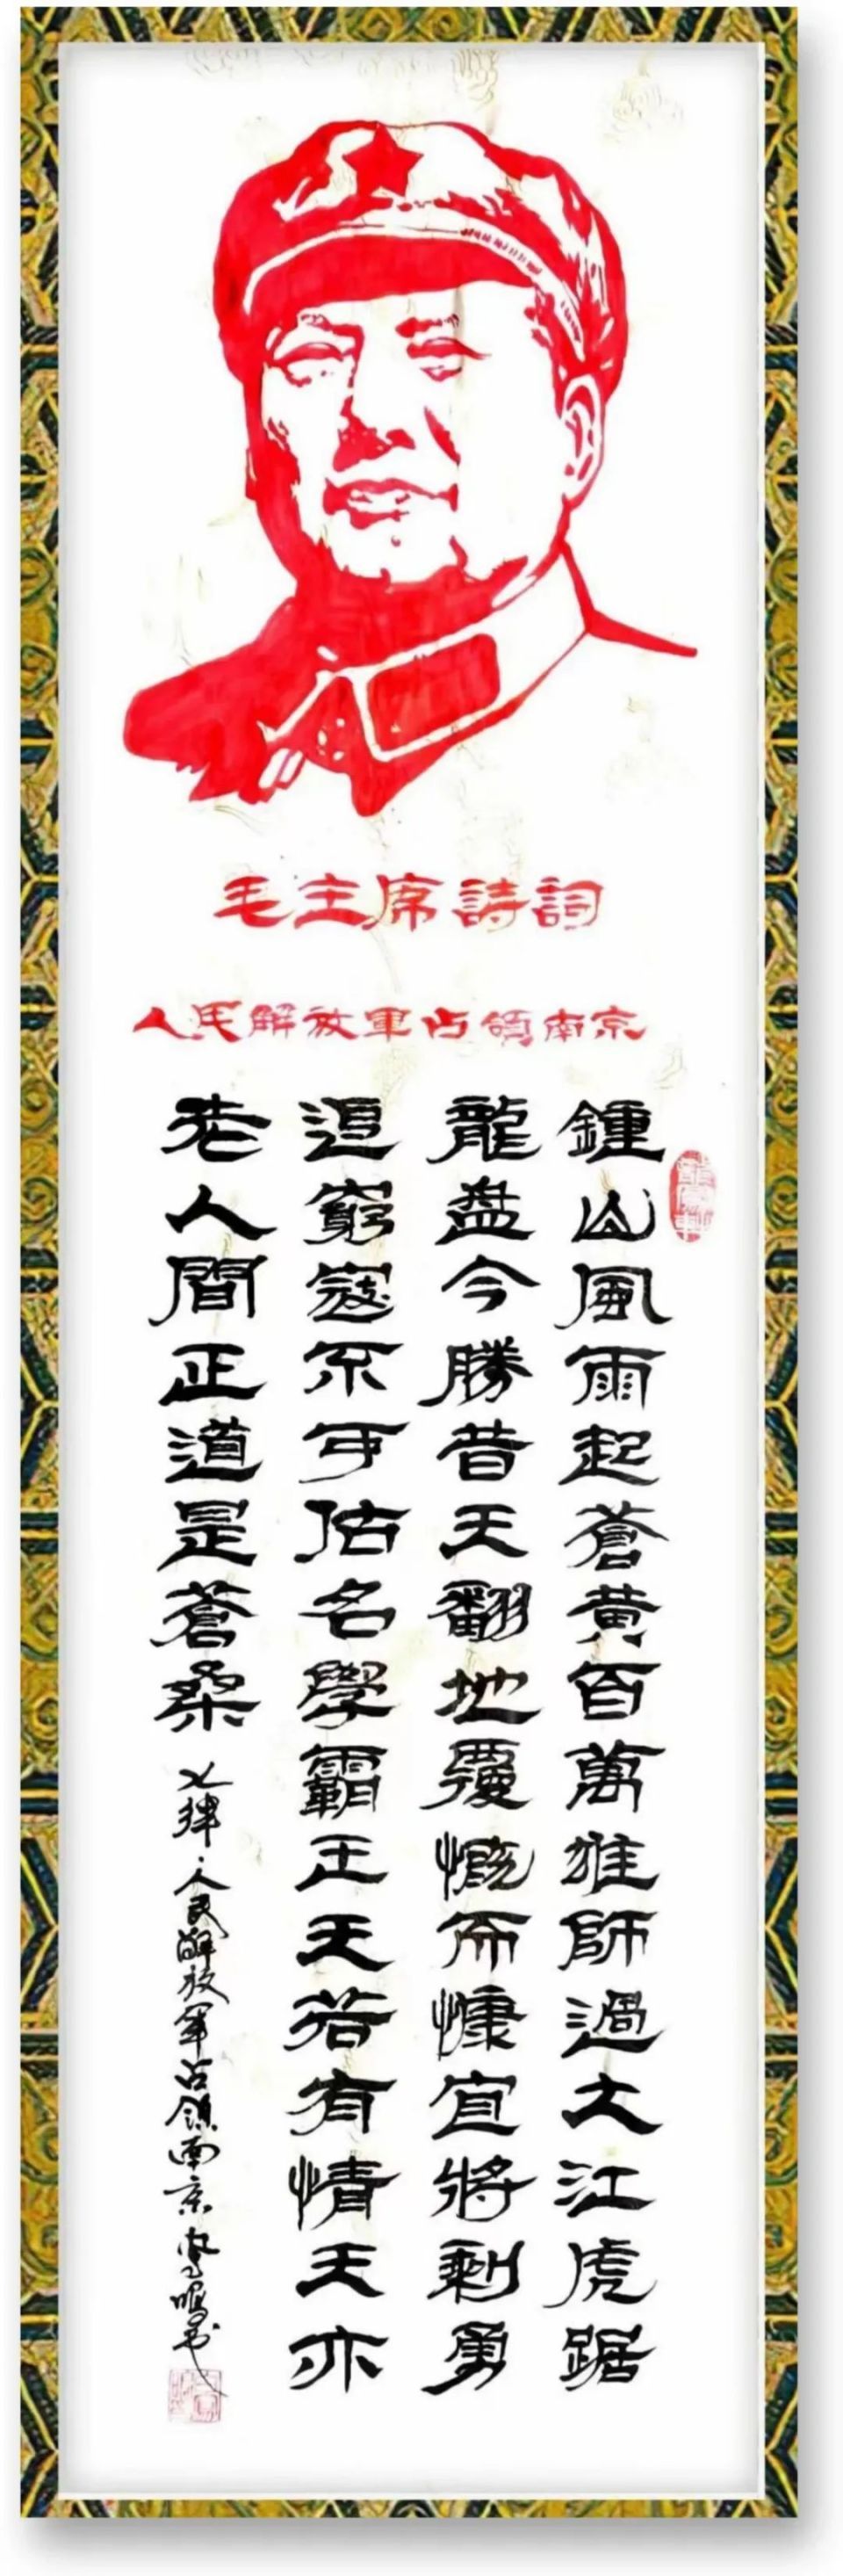 毛主席詩詞
人民解放軍占領南京
鍾山風雨起蒼黃百萬雄師過大江虎踞
龍盘今勝昔天翻地覆慨而慷宜將剩勇
追窮寇不可估名學霸王天若有情天亦
老人間正道是蒼桑
七律·人民解放军占领南京